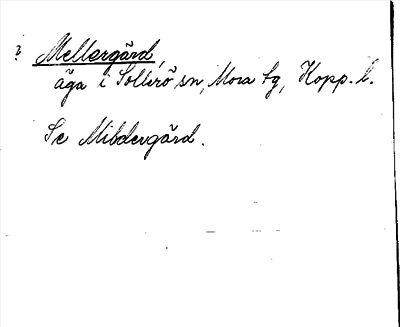 ? Mellergård,
äga i Sollerö sn, Mora tg, Kopp. l.
Se Mildergård.